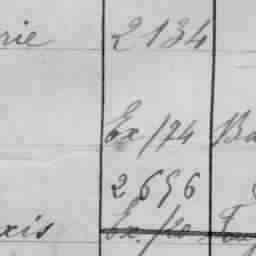 rie 2134
Ex/74 Ba
2656
xis Ex./10